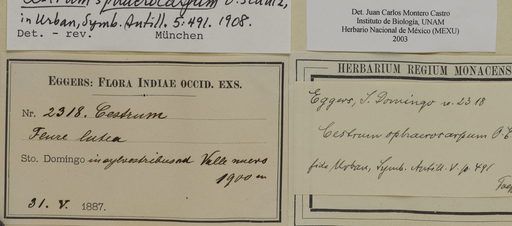 Cestrum sphaerocarpum O. Schulz,
in Urban, Symb. Antill. 5: 491. 1908.
Det. - rev. München
Det. Juan Carlos Montero Castro
Instituto de Biología, UNAM
Herbario Nacional de México (MEXU)
2003
EGGERS: FLORA INDIAE OCCID. EXS.
Nr. 2318. Cestrum
Flore lutea
Sto. Domingo in sylvestribus ad Valle nuevo
1900 m
31. V. 1887.
HERBARIUM REGIUM MONACENS
Eggers, S. Domingo n. 2318
Cestrum sphaerocarpum O. E
fide Urban, Symb. Antill. V. p. 491